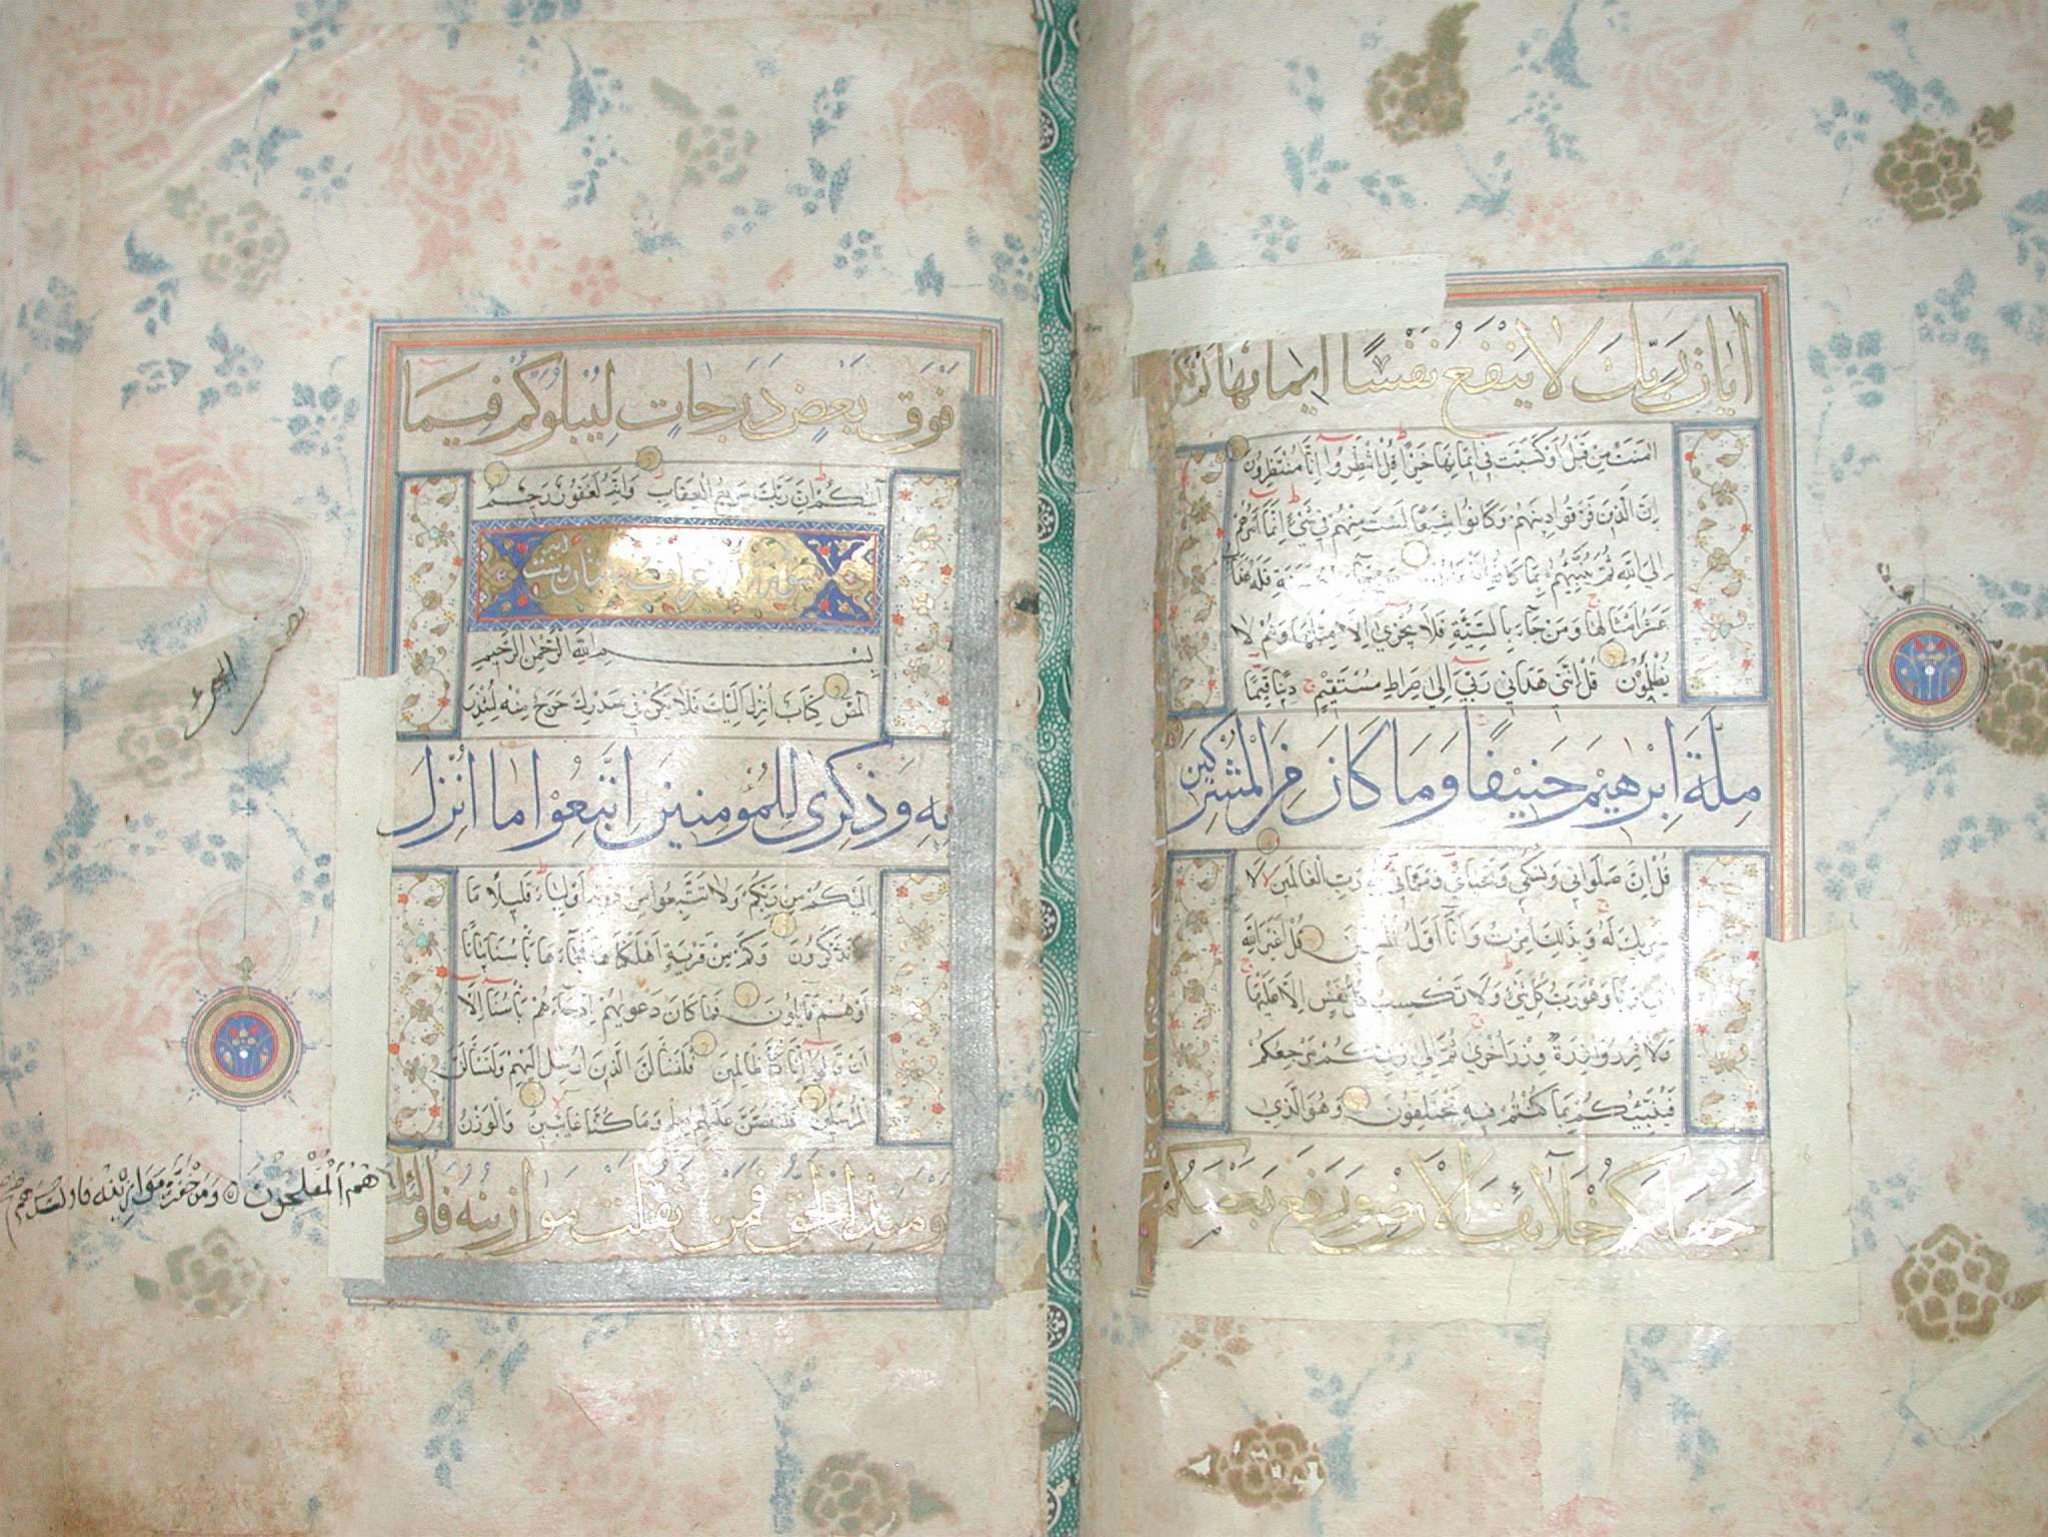 ايات ربك لا ينفع نفسا ايمانها لم تكن
امنت من قبل او كسبت في ايمانها خيرا قل انتظروا انا منتظرون
ان الذين فرقوا دينهم وكانوا شيعا لست منهم في شيء انما امرهم
الى الله ثم ينبئهم بما كانوا
عشر امثالها ومن جاء بالسيئة فلا يجزى الا مثلها وهم لا
يظلمون قل انني هداني ربي الى صراط مستقيم دينا قيما
ملة ابرهيم حنيفا وما كان من المشركين
قل ان صلواتي ونسكي ومحياي ومماتي لله رب العالمين لا
شريك له وبذلك امرت وانا اول المسلمين قل اغير الله
ابغي ربا وهو رب كل شيء ولا تكسب كل نفس الا عليها
ولا تزر وازرة وزر اخرى ثم الى ربكم مرجعكم
فينبئكم بما كنتم فيه تختلفون وهو الذي
جعلكم خلائف الارض ورفع بعضكم
فوق بعض درجات ليبلوكم فيما
آتيكم ان ربك سريع العقاب وانه لغفور رحيم
بسم الله الرحمن الرحيم
المص كتاب انزل اليك فلا يكن في صدرك حرج منه لتنذر
به وذكرى للمؤمنين اتبعوا ما انزل
اليكم من ربكم ولا تتبعوا من دونه اولياء قليلا ما
تذكرون وكم من قرية اهلكناها فجاءها باسنا بياتا
او هم قايلون فما كان دعويهم اذ جاءهم باسنا الا
ان قالوا انا كنا ظالمين فلنسالن الذين ارسل اليهم ولنسالن
المرسلين فلنقصن عليهم بعلم وما كنا غايبين والوزن
يومئذ الحق فمن ثقلت موازينه فاولئك
هم المفلحون ومن خفت موازينه فاولئك